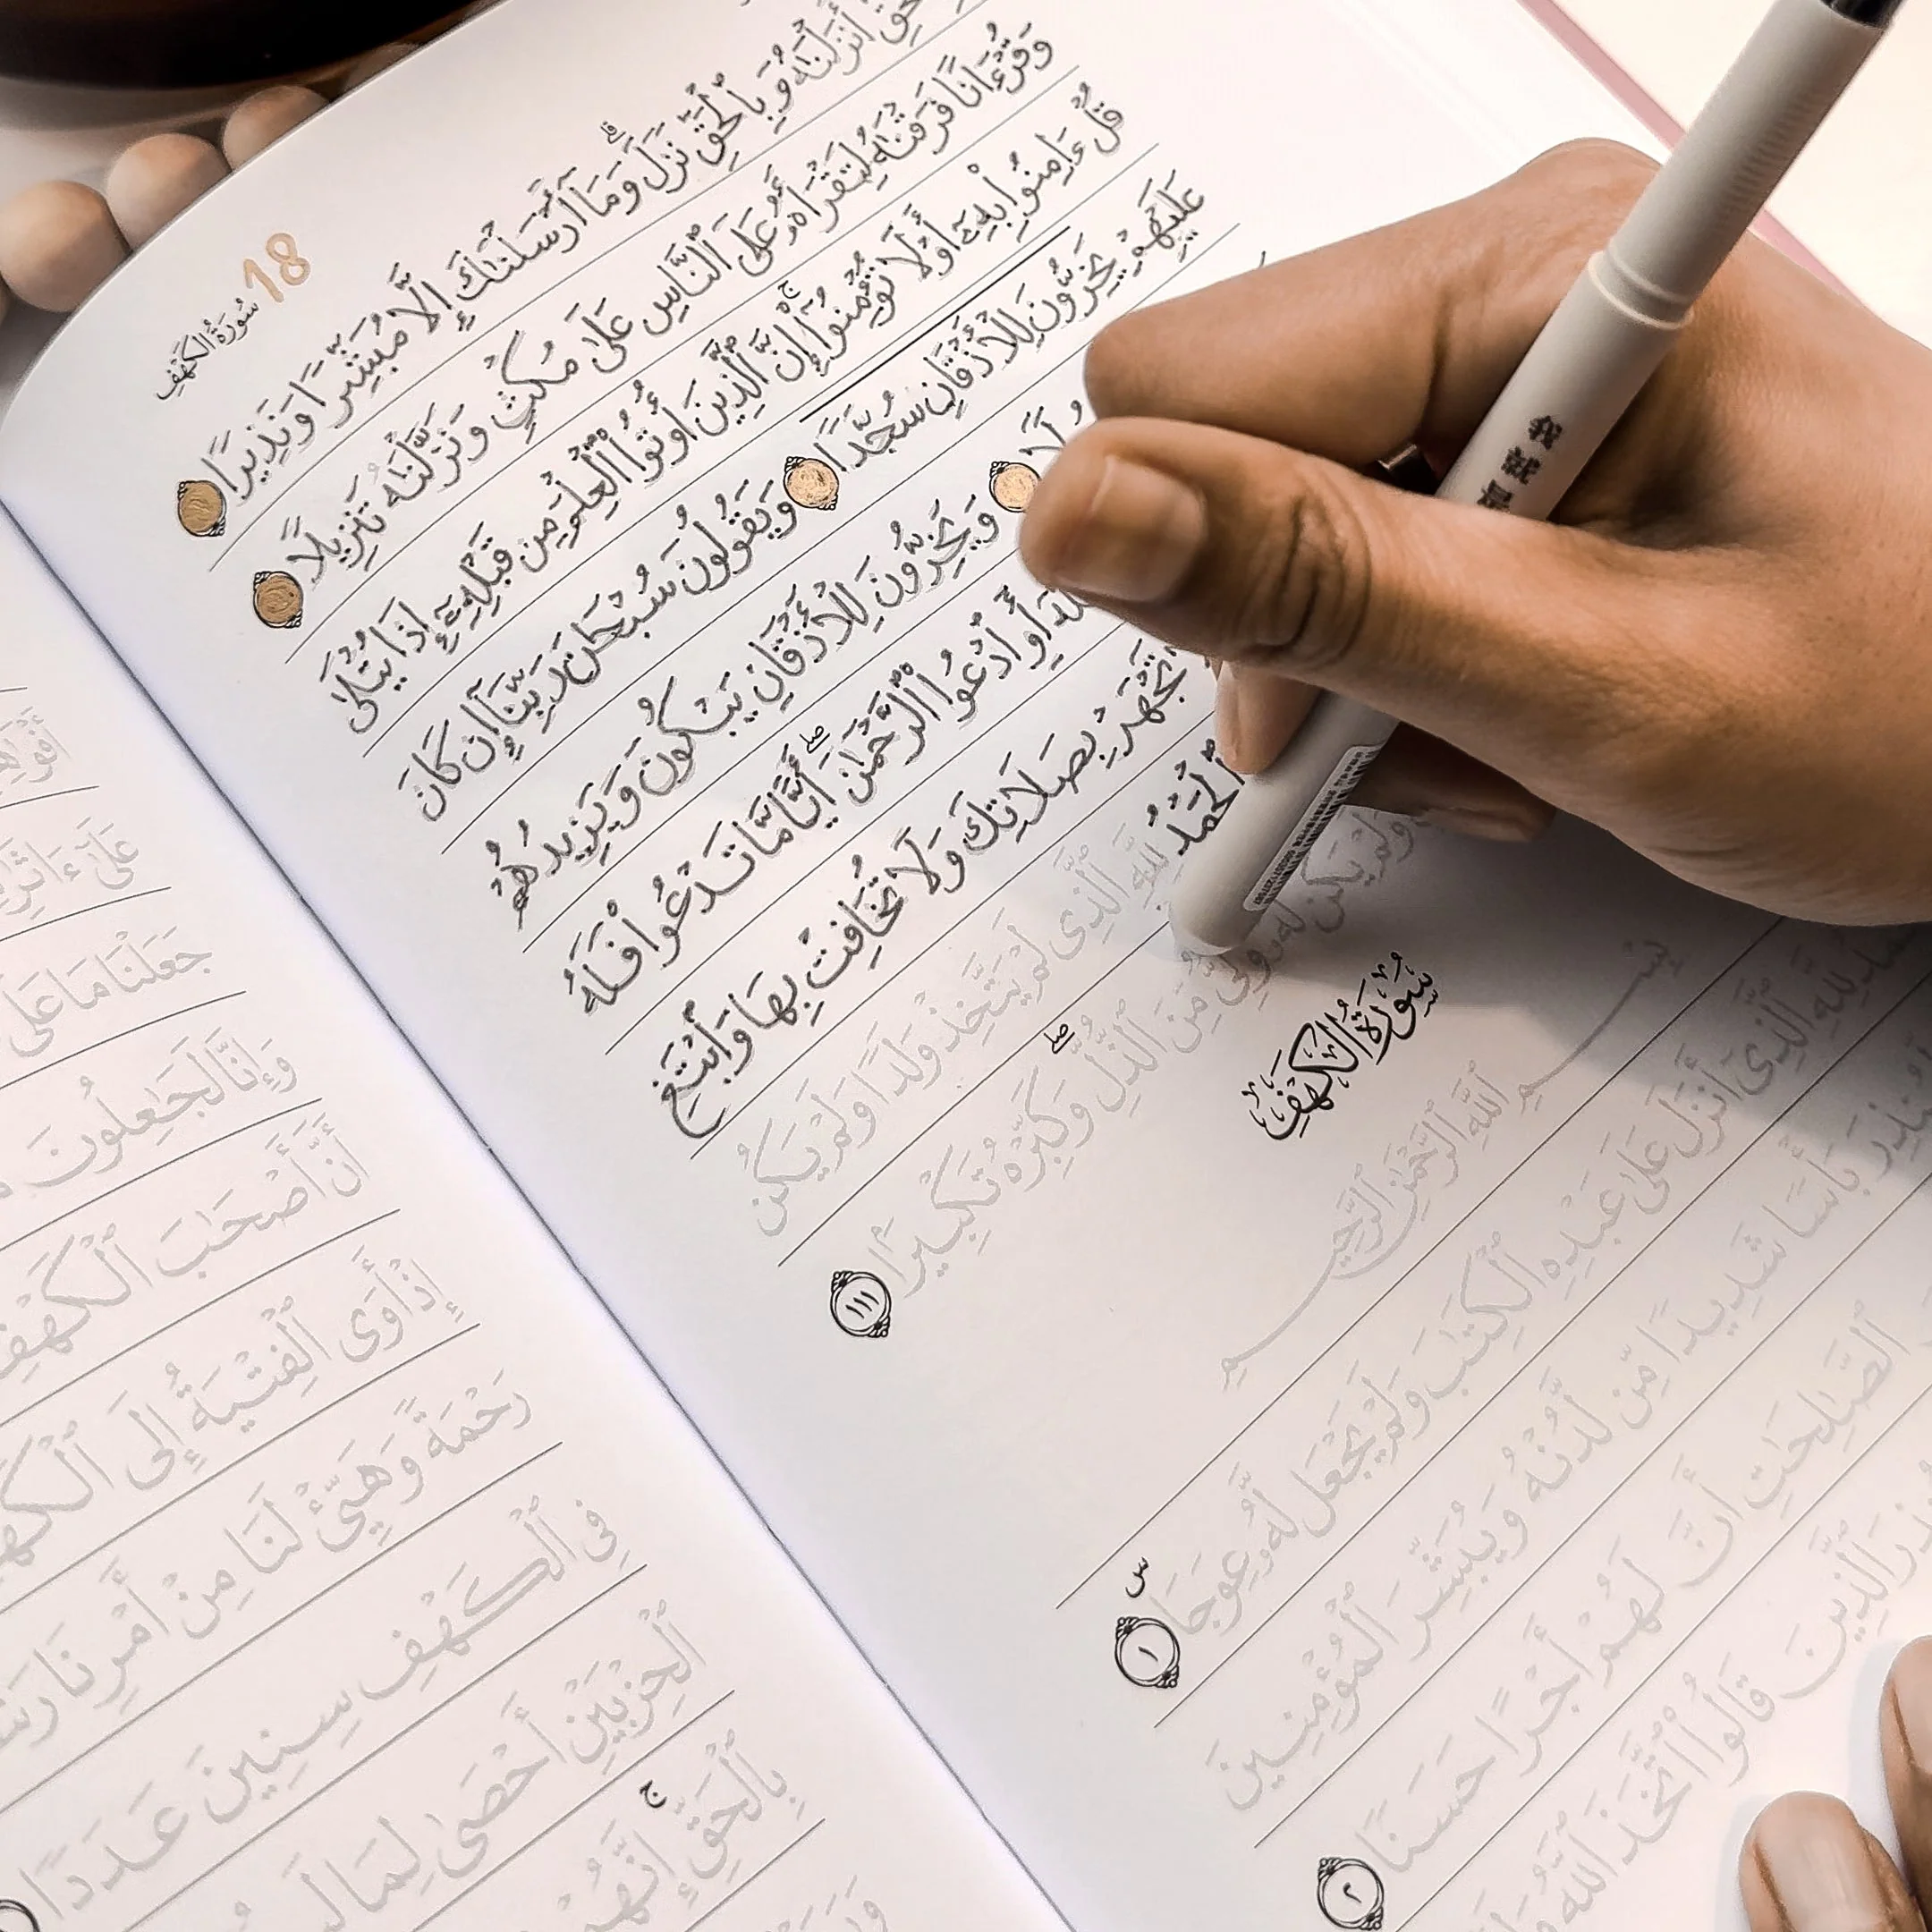 سُورَةُ الكَهْفِ 18
أَنزَلْنَٰهُ وَبِٱلْحَقِّ نَزَلَ ۗ وَمَآ أَرْسَلْنَٰكَ إِلَّا مُبَشِّرًا وَنَذِيرًا
وَقُرْءَانًا فَرَقْنَٰهُ لِتَقْرَأَهُۥ عَلَى ٱلنَّاسِ عَلَىٰ مُكْثٍ وَنَزَّلْنَٰهُ تَنزِيلًا
قُلْ ءَامِنُوا۟ بِهِۦٓ أَوْ لَا تُؤْمِنُوٓا۟ ۚ إِنَّ ٱلَّذِينَ أُوتُوا۟ ٱلْعِلْمَ مِن قَبْلِهِۦٓ إِذَا يُتْلَىٰ
عَلَيْهِمْ يَخِرُّونَ لِلْأَذْقَانِ سُجَّدًا وَيَقُولُونَ سُبْحَٰنَ رَبِّنَآ إِن كَانَ
وَيَخِرُّونَ لِلْأَذْقَانِ يَبْكُونَ وَيَزِيدُهُمْ
أَوِ ٱدْعُوا۟ ٱلرَّحْمَٰنَ ۖ أَيًّا مَّا تَدْعُوا۟ فَلَهُ
تَجْهَرْ بِصَلَاتِكَ وَلَا تُخَافِتْ بِهَا وَٱبْتَغِ
ٱلْحَمْدُ لِلَّهِ ٱلَّذِى لَمْ يَتَّخِذْ وَلَدًا وَلَمْ يَكُن
وَلَمْ يَكُن لَّهُۥ وَلِىٌّ مِّنَ ٱلذُّلِّ ۖ وَكَبِّرْهُ تَكْبِيرًا ١١١
سُورَةُ الكَهْفِ
بِسْمِ ٱللَّهِ ٱلرَّحْمَٰنِ ٱلرَّحِيمِ
لِلَّهِ ٱلَّذِىٓ أَنزَلَ عَلَىٰ عَبْدِهِ ٱلْكِتَٰبَ وَلَمْ يَجْعَل لَّهُۥ عِوَجَا ۜ ١
بَأْسًا شَدِيدًا مِّن لَّدُنْهُ وَيُبَشِّرَ ٱلْمُؤْمِنِينَ
ٱلصَّٰلِحَٰتِ أَنَّ لَهُمْ أَجْرًا حَسَنًا ٢
ٱلَّذِينَ قَالُوا۟ ٱتَّخَذَ ٱللَّهُ
عَلَىٰٓ
جَعَلْنَا مَا عَلَى
وَإِنَّا لَجَٰعِلُونَ
أَنَّ أَصْحَٰبَ ٱلْكَهْفِ
إِذْ أَوَى ٱلْفِتْيَةُ إِلَى
رَحْمَةً وَهَيِّئْ لَنَا مِنْ أَمْرِنَا
فِى ٱلْكَهْفِ سِنِينَ عَدَدًا
ٱلْحِزْبَيْنِ أَحْصَىٰ لِمَا
بِٱلْحَقِّ ۚ إِنَّهُمْ